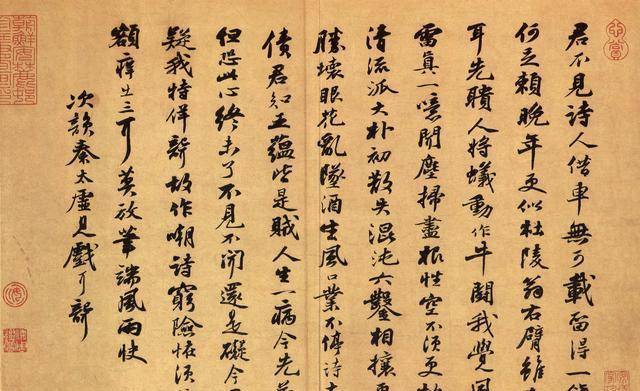 君不見詩人借車無可載留得一
何足賴晚年更似杜陵翁右臂雖
耳先聵人將蟻動作牛鬪我覺風
雷真一噫聞塵掃盡根性空不須更
清流派大朴初散失混沌六鑿相攘更
勝壞眼花亂墜酒生風口業不停詩
債君知五蘊皆是賊人生一病今先
但恐此心終未了不見不聞還是礙今
疑我特佯聾故作嘲詩窮險怪須
額癢出三耳莫放筆端風雨快
次韻秦太虛見戲耳聾